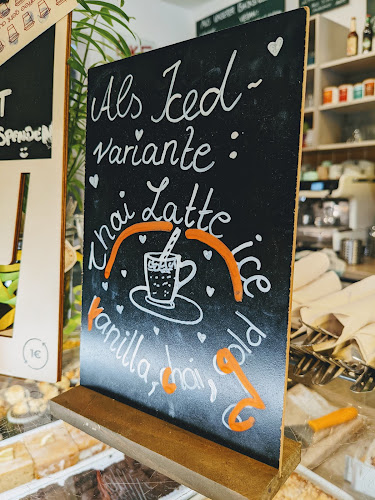 Als Iced-
variante:
Chai Latte ice
Vanilla, chai, gold
T
SPENDEN
1€